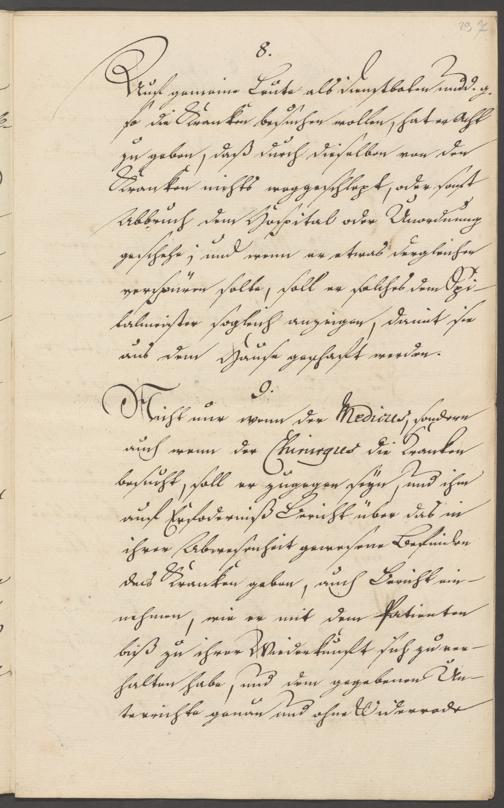 8.
Auf gemeine Leute als Dienstboten und d. g.
so die Kranken besuchen wollen, hat er Acht
zu geben, daß durch dieselben von den
Kranken nichts weggeschlept, oder sonst
Abbruch dem Hospital oder Unordnung
geschehe; und wenn er etwas dergleichen
verspüren solte, soll er solches dem Spi-
talmeister sogleich anzeigen, damit sie
aus dem Hause geschaft werden.
9.
Nicht nur wenn der Medicus, sondern
auch wenn der Chirurgus die Kranken
besucht, soll er zugegen seyn, und ihm
auf Erforderniß Bericht über das in
ihrer Abwesenheit gewesene Befinden
des Kranken geben, auch Bericht ein-
nehmen, wie er mit dem Patienten
biß zu ihrer Wiederkunft sich zu ver-
halten habe, und dem gegebenen Un-
terrichte genau und ohne Widerrede